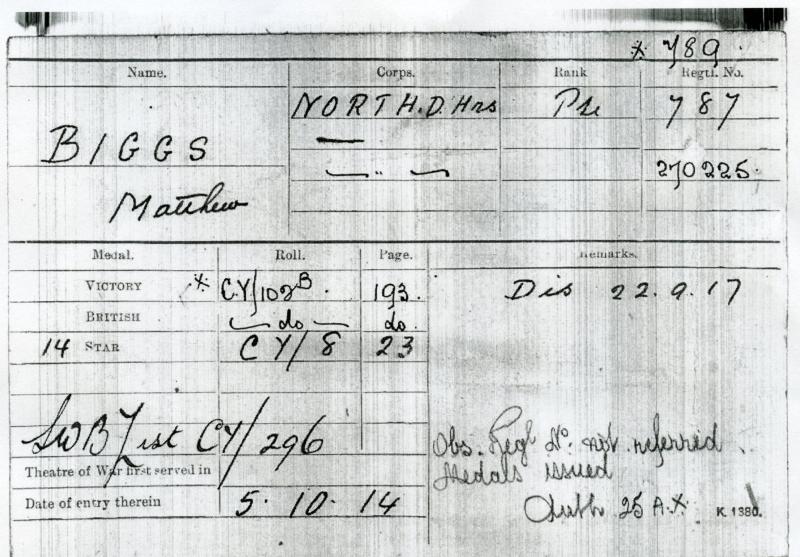 * 789
Name. Corps. Rank Regtl. No.
BIGGS NORTH.D.Hrs Pte 787
Matthew " 270225.
Medal. Roll. Page. Remarks.
VICTORY * CY/102B. 193. Dis 22.9.17
BRITISH do do.
14 STAR CY/8 23
SWB List CY/296
Obs. Regl No. not referred.
Theatre of War first served in
Medals issued
Date of entry therein 5. 10. 14
25 A.X. K 1380.